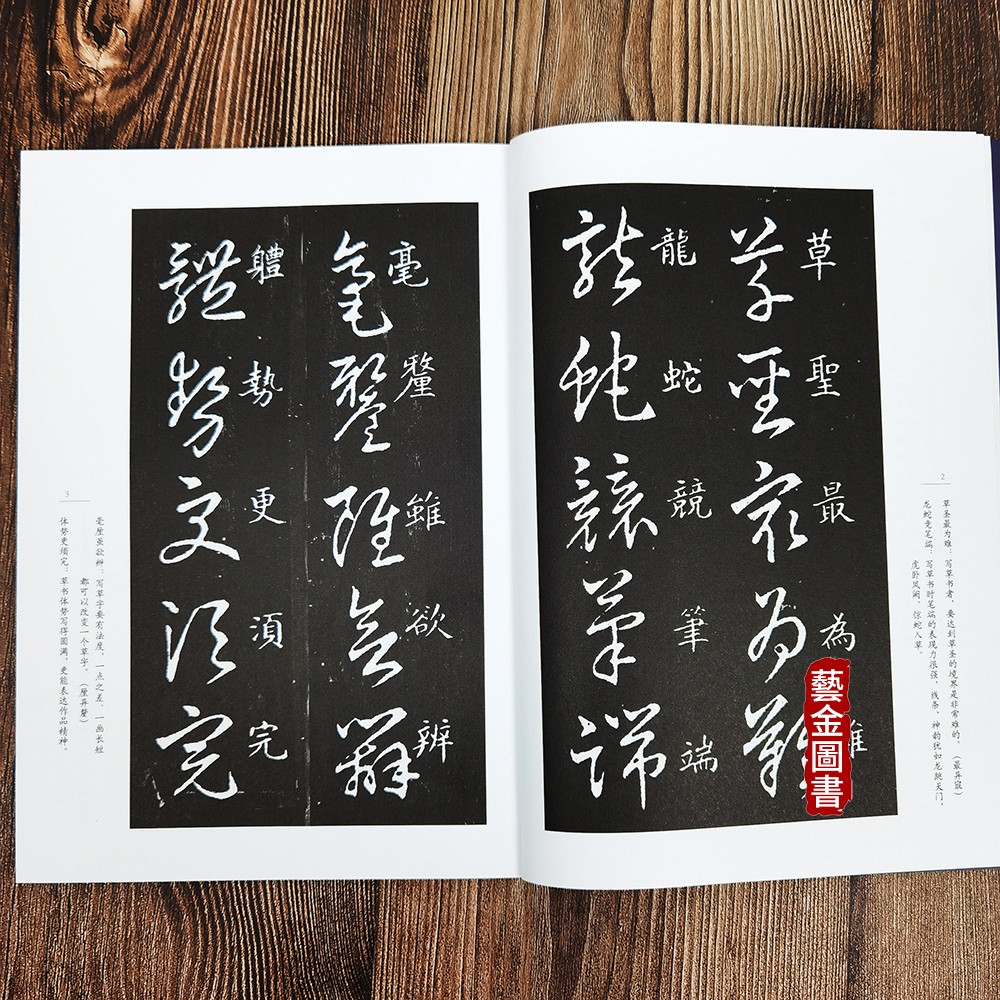 2
草圣最为难：写草书者，要达到草圣的境界是非常难的。（最异冣）
龙蛇竞笔端：写草书时笔端的表现力很强，线条、神韵犹如龙跳天门，
虎卧凤阙，惊蛇入草。
草聖最為難
草聖最為難
龍蛇競筆端
龍蛇競筆端
藝金圖書
毫釐雖欲辨
毫釐雖欲辨
軆勢更湏完
軆勢更湏完
3
毫厘虽欲辨：写草字要有法度，一点之差、一画长短
都可以改变一个草字。（厘异釐）
体势更须完：草书体势写得圆满，更能表达作品精神。